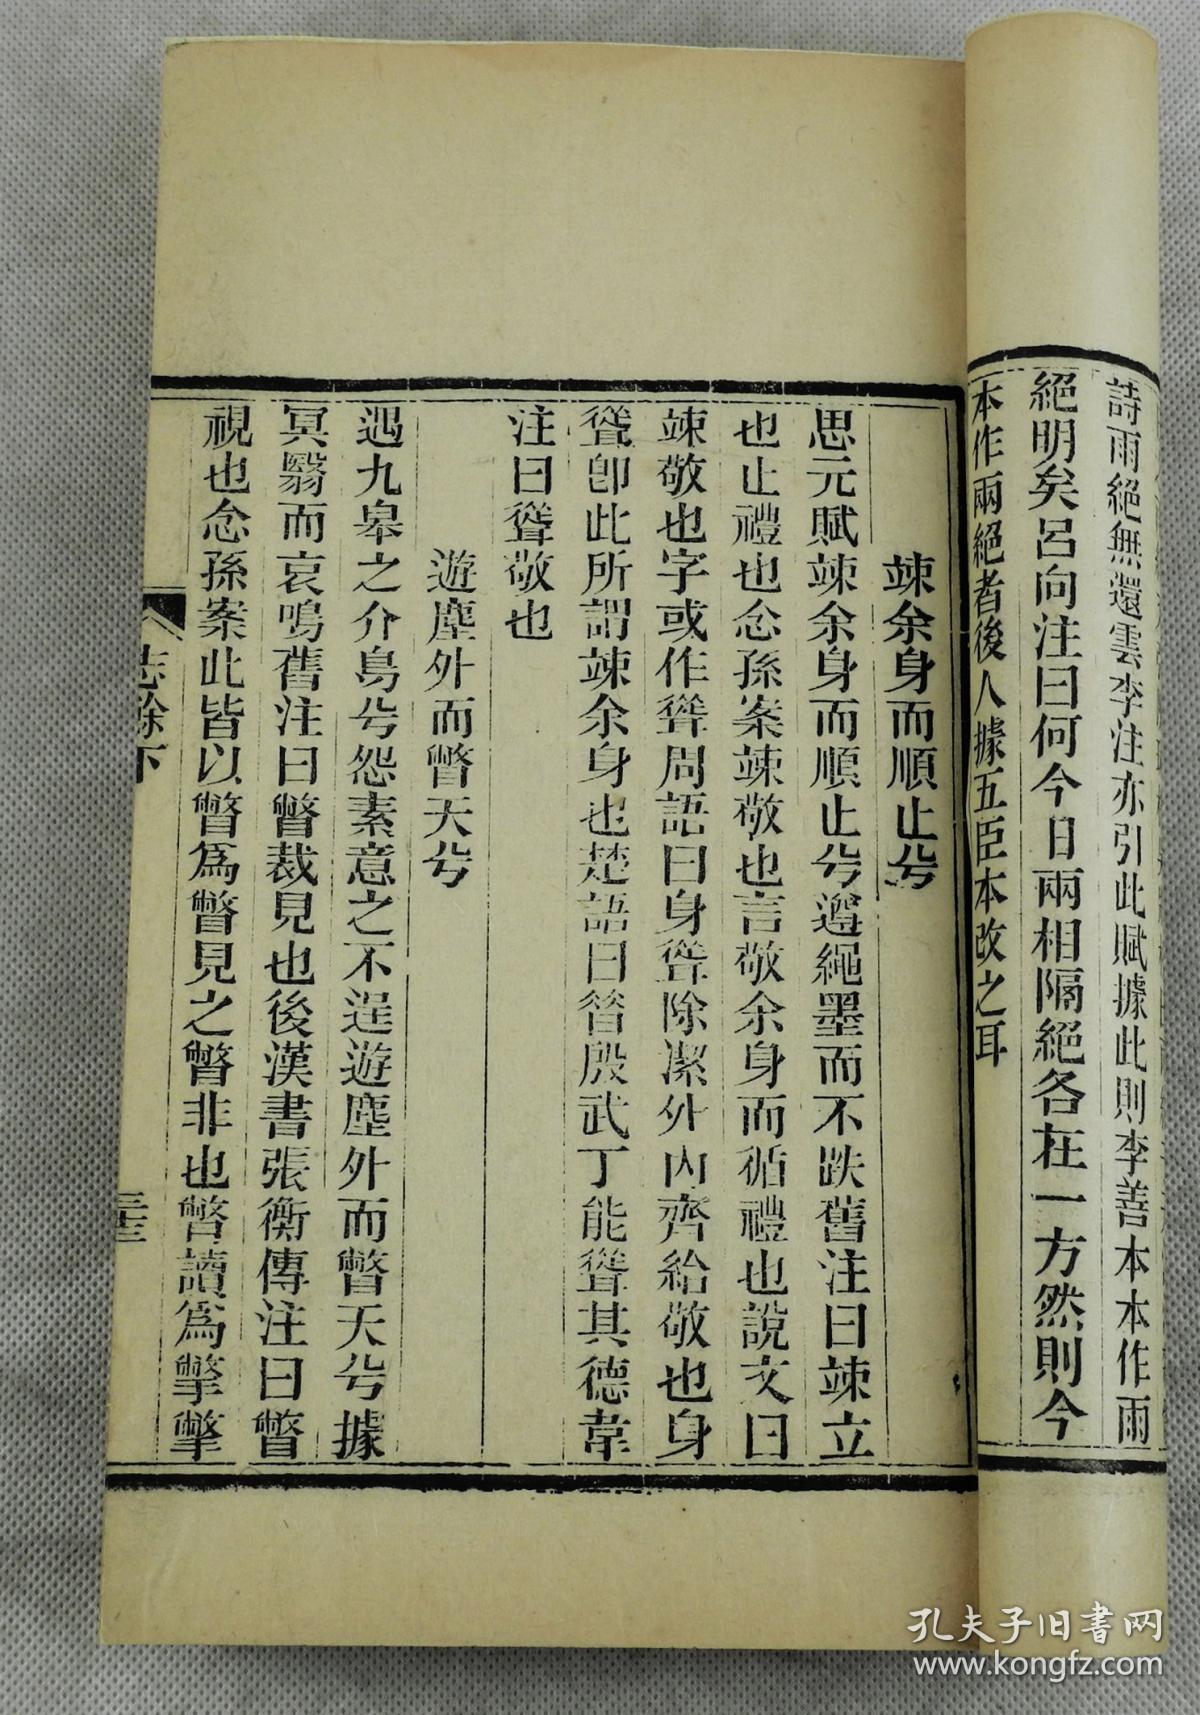 詩雨絕無還雲李注亦引此賦據此則李善本本作雨
絕明矣呂向注曰何今日兩相隔絕各在一方然則今
本作兩絕者後人據五臣本改之耳
竦余身而順止兮
思元賦竦余身而順止兮遵繩墨而不跌舊注曰竦立
也止禮也念孫案竦敬也言敬余身而循禮也說文曰
竦敬也字或作聳周語曰身聳除潔外內齊給敬也身
聳卽此所謂竦余身也楚語曰昔殷武丁能聳其德韋
注曰聳敬也
遊塵外而瞥天兮
遇九皋之介鳥兮怨素意之不逞遊塵外而瞥天兮據
冥翳而哀鳴舊注曰瞥裁見也後漢書張衡傳注曰瞥
視也念孫案此皆以瞥爲瞥見之瞥非也瞥讀爲擎擎
志餘下
三十三
孔夫子旧书网
www.kongfz.com